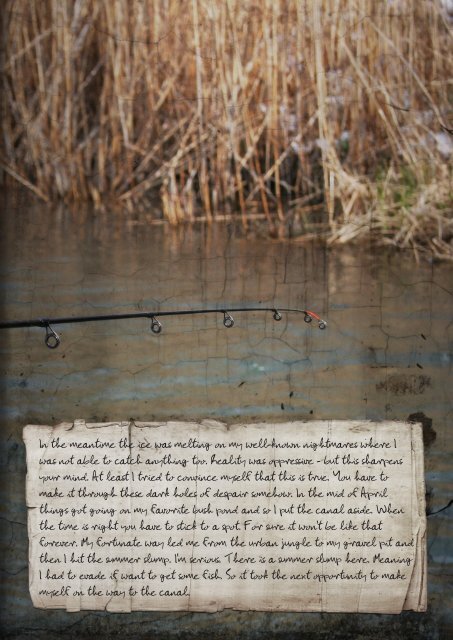 In the meantime the ice was melting on my well-known nightmares where I
was not able to catch anything too. Reality was oppressive - but this sharpens
your mind. At least I tried to convince myself that this is true. You have to
make it through these dark holes of despair somehow. In the mid of April
things got going on my favorite lush pond and so I put the canal aside. When
the time is right you have to stick to a spot. For sure it won't be like that
forever. My fortunate way led me from the urban jungle to my gravel pit and
then I hit the summer slump. I'm serious. There is a summer slump here. Meaning
I had to evade if want to get some fish. So it took the next opportunity to make
myself on the way to the canal.